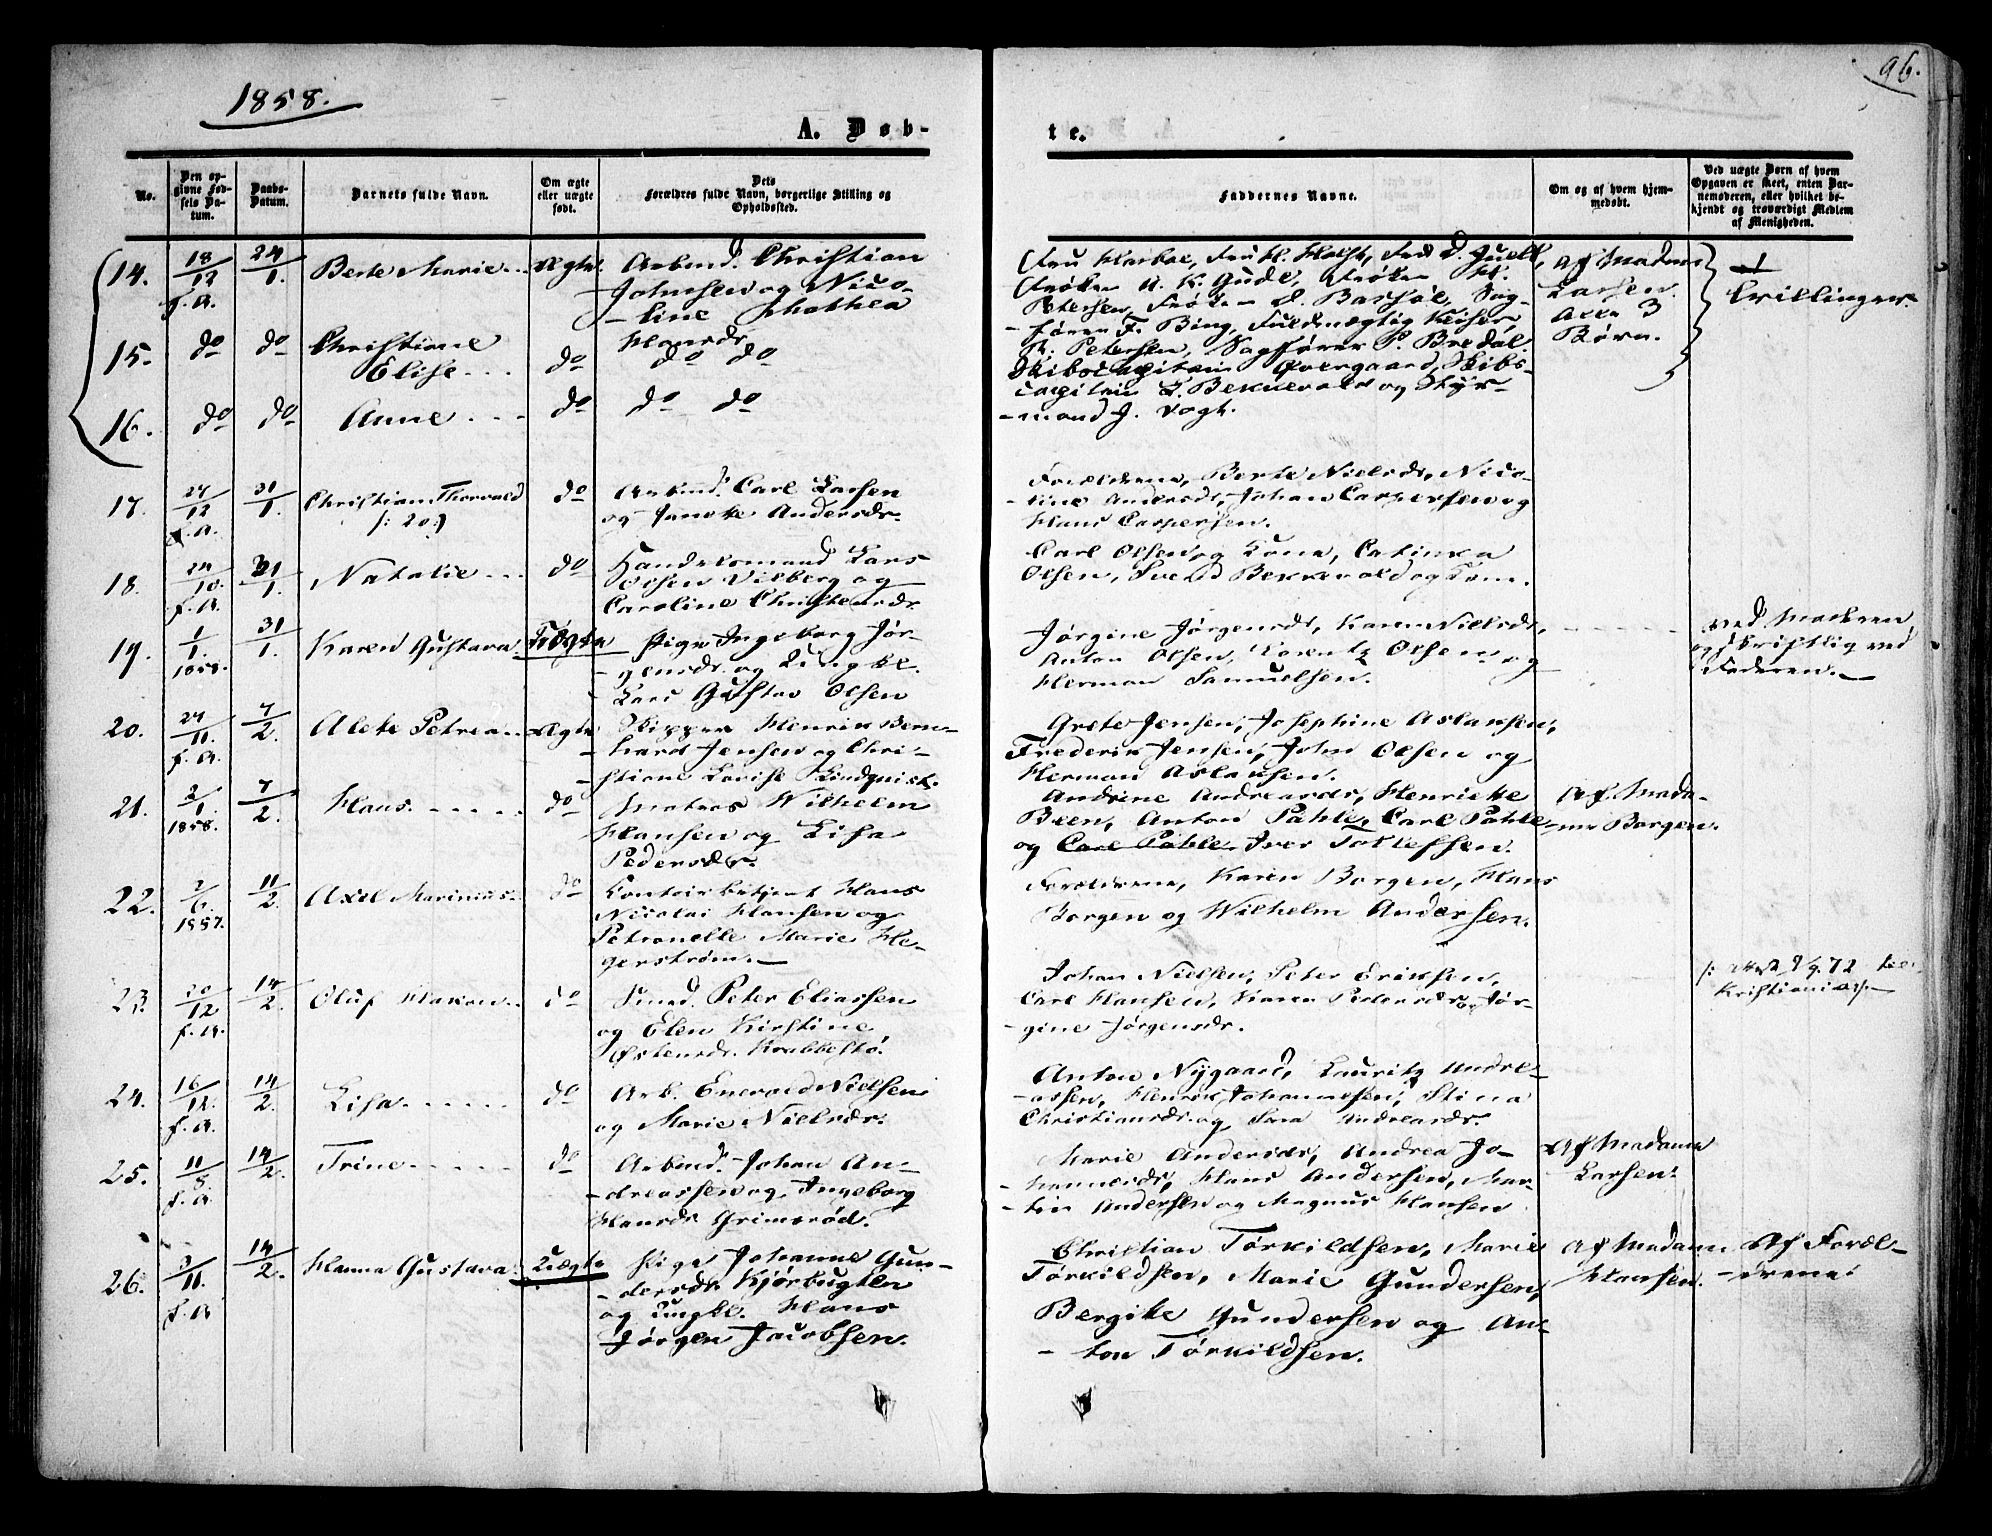 1858.
96.
A. Døb-
te.
No.
Den op-
givne Fød-
sels Da-
tum.
Daabs-
Datum.
Barnets fulde Navn.
Om ægte
eller uægte
født.
Dets
Forældres fulde Navn, borgerlige Stilling og
Opholdssted.
Faddernes Navne.
Om og af hvem hjem-
medøbt.
Ved uægte Børn af hvem
Opgaven er skeet, enten Bar-
nemoderen, eller hvilket be-
kjendt og troværdigt Medlem
af Menigheden.
14.
18/12
f. A.
24/1.
Berte Marie
Ægte
Arbmd. Christian
Johnsen og Nico-
- line Mathea
Hansdr
Fru Harboe, Fru H. Holst,
Petersen, Frøken D. Barsøe, Sag-
- fører F. Bing, Fuldmægtig Keiser,
P. Petersen, Sagfører P. Bredal
Skibscapitain Overgaard, Skibs-
capitain L. Beknevold og Styr-
- mand J. Vogt.
Af Madm
Larsen.
Alle 3
Børn.
Trillinger
15.
do
do
Christiane
Elise
do
do do
16.
do
do
Anne
do
do do
17.
27/12
f. A.
31/1.
Christian Thorvald
/: 20 :/
do
Arbmd. Carl Larsen
og Janeke Andersdr.
Forældrene, Berte Nielsdr, Nico-
- line Andersdr, Johan Caspersen og
Hans Caspersen.
18.
24/10.
f. A.
31/1.
Natalie
do
Handelsmand Lars
Olsen Vilberg og
Caroline Christensdr
Carl Olsen og Kone, Catinka
Olsen, Svend Bekkevold og Kone.
19.
1/1.
1858.
31/1.
Karen Gustava
Uægte
Pige Ingeborg Jør-
- gensdr. og Ungkl.
- Lars Gustav Olsen
Jørgine Jørgensdr, Karen Nielsdr,
Anton Olsen, Lorentz Olsen og
Herman Samuelsen.
ved Moderen
og skriftlig ved
Faderen.
20.
27/11.
f. A.
7/2.
Alette Petrea
Ægte
Skipper Henrik Bern-
- hard Jensen og Chri-
- stiane Lovise Lindquist.
Grete Jensen, Josephine Aslaksen,
Frederik Jensen, John Olsen og
Herman Aslaksen.
21.
2/1
1858.
7/2.
Hans.
do
Matros Wilhelm
Hansen og Lisa
Pedersdr.
Andrine Andreasdr, Henrikke
Been, Anton Pahle, Carl Pahle
og Carl Pahle Iver Tollefsen.
Af Mada-
- me Borgen.
22.
2/6.
1857.
11/2.
Axel Marinius
do
Contoirbetjent Hans
Nicolai Hansen og
Petronelle Marie He-
gerstrøm.
Forældrene, Karen Borgen, Hans
Borgen og Wilhelm Andersen.
23.
20/12
f. A.
14/2.
Oluf Hakon
do
Smed. Peter Eliassen
og Elen Kirstine
Østensdr. Krabbestø.
Johan Nielsen, Peter Eriksen,
Carl Hansen, Karen Pedersdr og Jør-
- gine Jørgensdr.
/: Attest 9/9. 72 til
Kristiania :/
24.
16/12.
f. A.
14/2.
Lisa
do
Arb. Enevold Nielsen
og Marie Nielsdr.
Anton Nygaard, Lauritz Andre-
- assen, Henrik Johannesen, Stina
Christiansdr og Sara Andreasdr.
25.
11/8.
f. A.
14/2.
Trine
do
Arbmd. Johan An-
- dreassen og Ingeborg
Hansdr Grimsrød.
Marie Andersdr, Andrea Jo-
- hannesdr, Hans Andersen, Mar-
- tin Andersen og Magnus Hansen
Af Madame
Larsen.
26.
3/11.
f. A
14/2.
Hanna Gustava
Uægte
Pige Johanne Gun-
- dersdr Kjørbugten
og Ungkl. Hans
Jørgen Jacobsen.
Christian Torkildsen, Marie
Torkildsen, Marie Gundersen,
Bergitte Gundersen og An-
- ton Torkildsen.
Af Madam
Hansen.
Af Foræl-
- drene.